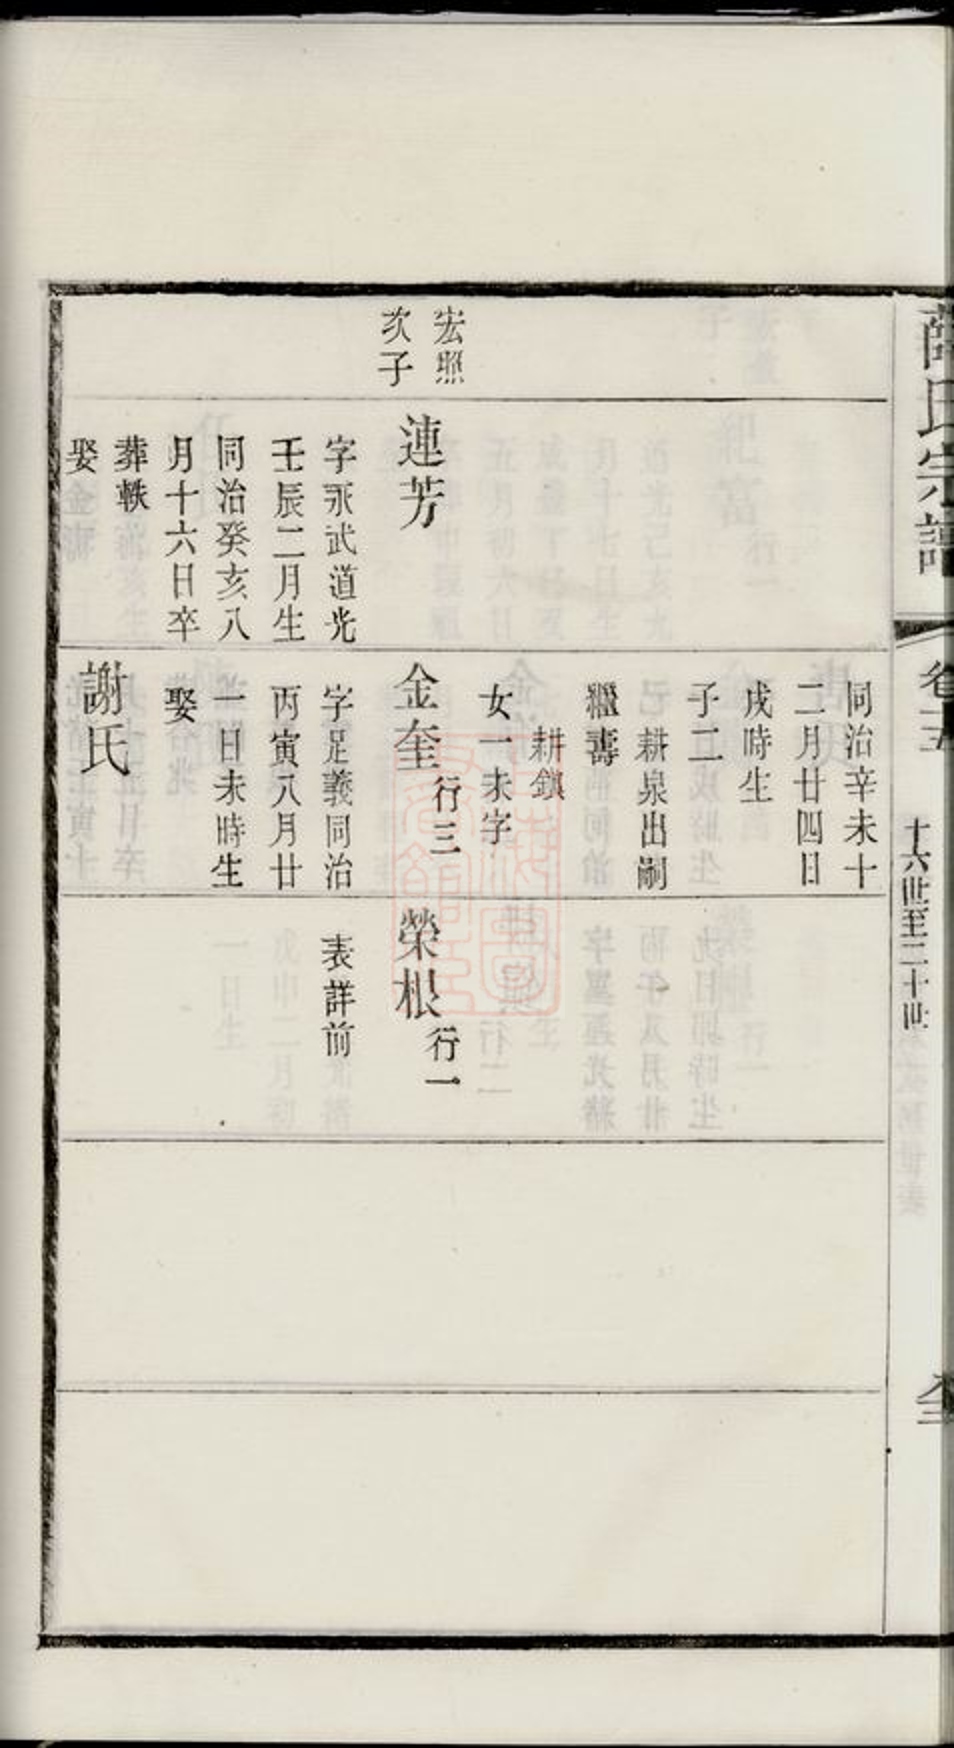 薛氏宗譜
卷五
十六世至二十世
宏照
次子
連芳
字永武道光
壬辰二月生
同治癸亥八
月十六日卒
葬軼
娶
同治辛未十
二月廿四日
戌時生
子二
耕泉出嗣
繼壽
耕鎮
女一未字
金奎行三
字足義同治
丙寅八月廿
一日未時生
娶
謝氏
榮根行一
表詳前